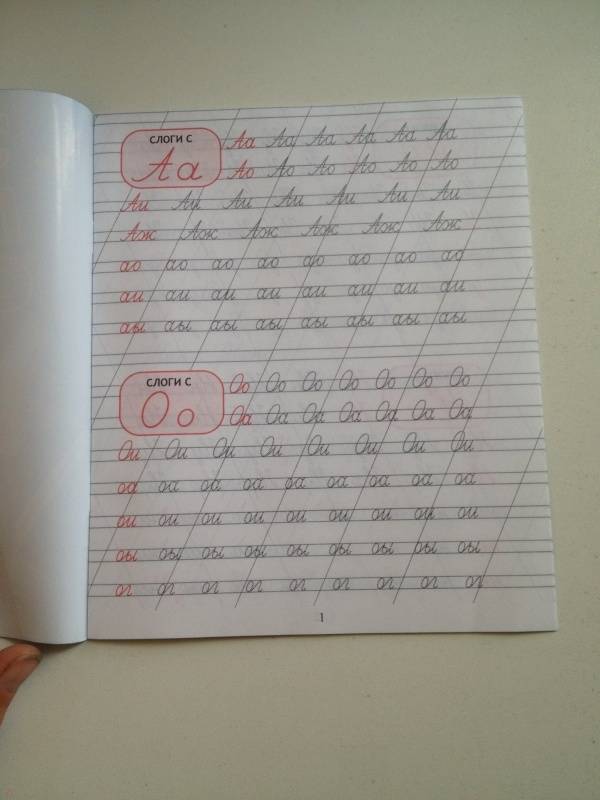 СЛОГИ С
Аа
Аа Аа Аа Аа Аа Аа
Ао Ао Ао Ао Ао Ао
Аи Аи Аи Аи Аи Аи Аи
Аж Аж Аж Аж Аж Аж
ао ао ао ао ао ао ао ао
аи аи аи аи аи аи аи аи
аы аы аы аы аы аы аы аы
СЛОГИ С
Оо
Оо Оо Оо Оо Оо Оо Оо
Оа Оа Оа Оа Оа Оа Оа
Ои Ои Ои Ои Ои Ои Ои Ои
оа оа оа оа оа оа оа оа оа
ои ои ои ои ои ои ои ои ои
оы оы оы оы оы оы оы оы оы
ог ог ог ог ог ог ог ог ог
1